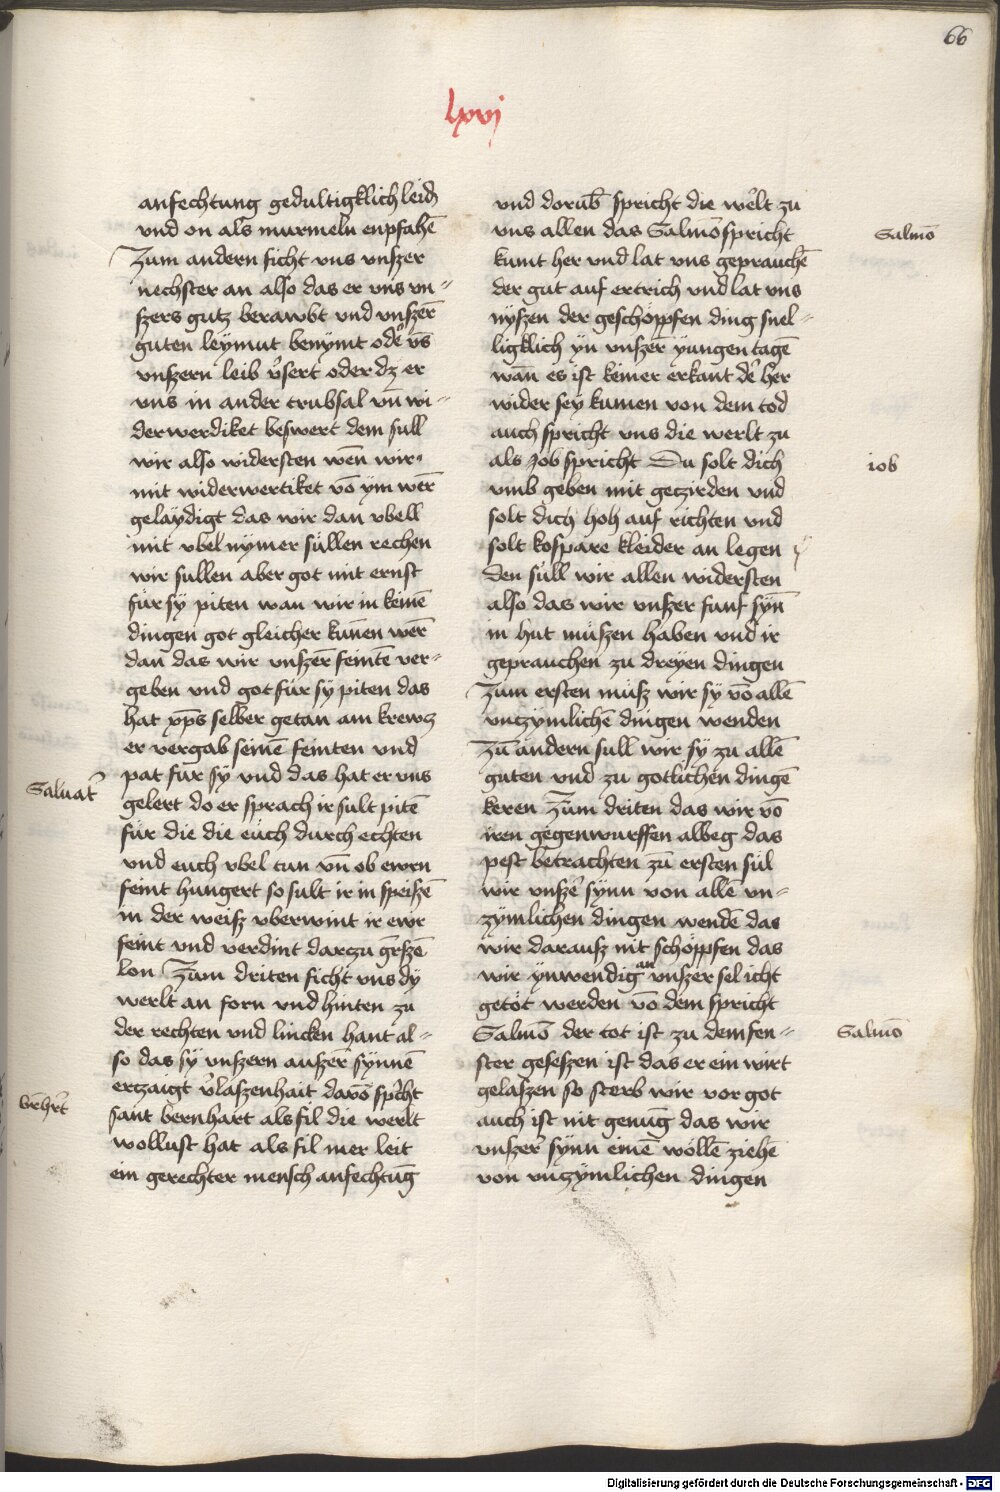 66
lxvj
anfechtung gedultigklich leidn̄
vnd on als murmeln enpfahē
Zum andern ficht vns vnszer
nechster an also das er vns vn-
szers gutz berawbt vnd vnszerē
guten leymut benymt odẽ vn̄s
vnszern leib v̓sert oder dz er
vns in ander trubsal vn̄ wi-
derwerdiket beswert dem sull
wir also widersten wen̄ wir
mit widerwertiket vō ym wer̄
gelaydigt das wir dan vbell
mit vbel nymer sullen rechen
wir sullen aber got mit ernst
für sy piten wan wir in keinē
dingen got gleicher kun̄en wer̄
dan das wir vnszerē feintē ver-
geben vnd got für sy piten das
hat xp̄s selber getan am krewcz
er vergab seinē feinten vnd
pat für sy vnd das hat er vns
Saluat̓
gelert do er sprach ir sult pitē
für die die eüch durch echten
vnd euch vbel tun vn̄ ob ewrn
feint hungert so sult ir in speiszē
in der weisz vberwint ir ewr
feint vnd verdint darczu gr̄szē
lon Zum driten ficht vns dy
werlt an forn vnd hinten zu
der rechten vnd lincken hant al-
so das sy vnszern auszerē synnē
erczaigt v̓laszenhait davō sp̓cht
bērh̓rt
sant bernhart als fil die werlt
wollust hat als fil mer leit
ein gerechter mensch anfechtūg
vnd dorub̄ spricht die wẽlt zu
vns allen das Salmō spricht
Salmō
kumt her vnd lat vns geprauchē
der gut auf ertrich vnd lat vns
nyszen der geschöppfen ding snel-
ligklich yn vnszer̄ yungen tagē
wan̄ es ist keiner erkant dẽ her̓
wider sey kumen von dem tod
auch spricht vns die werlt zu
als Job spricht Du solt dich
iob
vmb geben mit geczirden vnd
solt dich hoh auf richten vnd
solt kospare kleider an legen
den sull wir allen widersten
also das wir vnszer funf syn̄
in hut müszen haben vnd ir
geprauchen zu dreyen dingen
Zum ersten müsz wir sy vō allē
vnczymlichē dingen wenden
Zū andern sull wir sy zu allē
guten vnd zu gotlichen dingē
keren Zum driten das wir vō
iren gegenwurffen albeg das
pest betrachten zu ersten sül
wir vnszẽ synn von allē vn-
zymlichen dingen wendē das
wir darausz nit schöppfen das
wir ynwendig an vnszer sel icht
getöt werden vō dem spricht
Salmō der tot ist zu dem fen-
Salmō
ster geseszen ist das er ein wirt
gelaszen so sterb wir vor got
auch ist nit genūg das wir
vnszer̓ synn einē wöllē ziehē
von vnczymlichen dingen
Digitalisierung gefördert durch die Deutsche Forschungsgemeinschaft - DFG